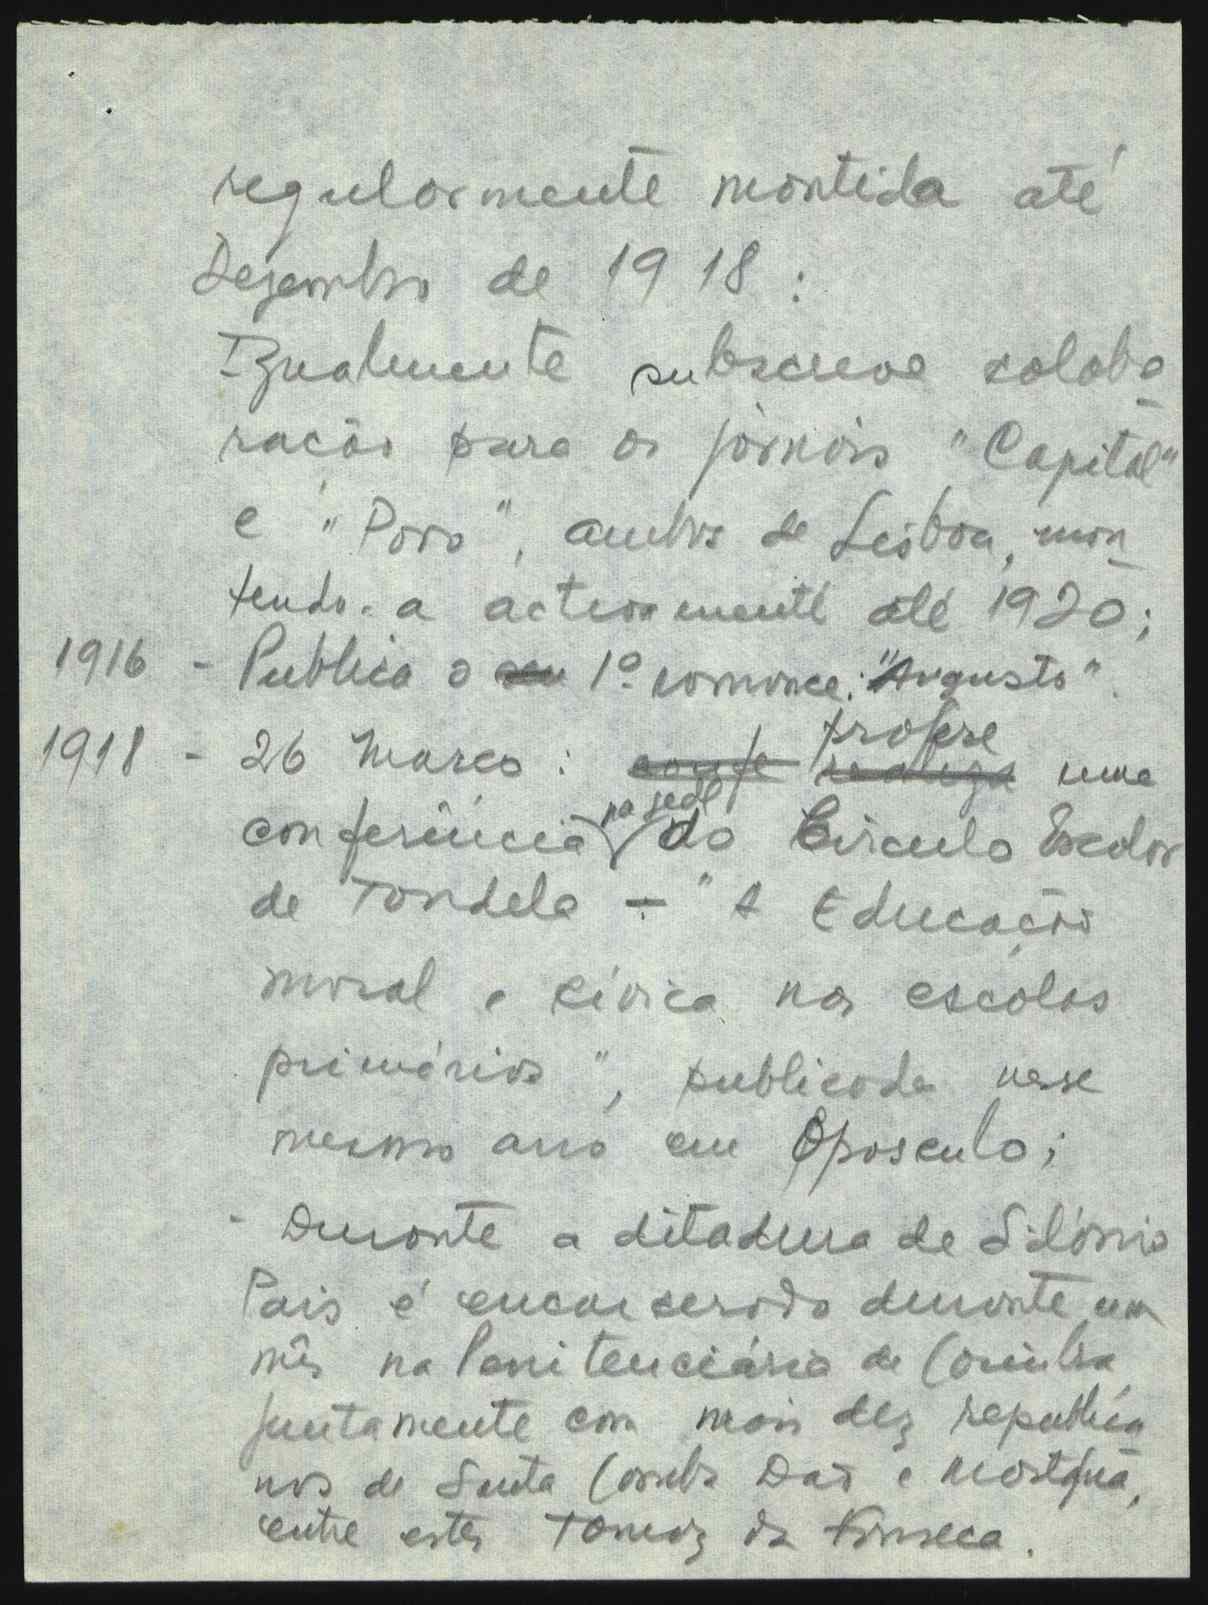 regularmente mantida até
Dezembro de 1918:
Igualmente subscreve colabo
ração para os jornais "Capital"
e "Povo", ambos de Lisboa, man
tendo-a activamente até 1920;
1916 - Publica o seu 1º romance: "Augusto".
1918 - 26 Março: confe realiza profere uma
conferência na sede do Círculo Escolar
de Tondela - "A Educação
moral e cívica nas escolas
primárias", publicada nesse
mesmo ano em Opusculo;
- Durante a ditadura de Sidónio
Pais é encarcerado durante um
mês na Penitenciária de Coimbra
juntamente com mais dez republica
nos de Santa Comba Dão e Mortágua,
entre estes Tomaz da Fonseca.